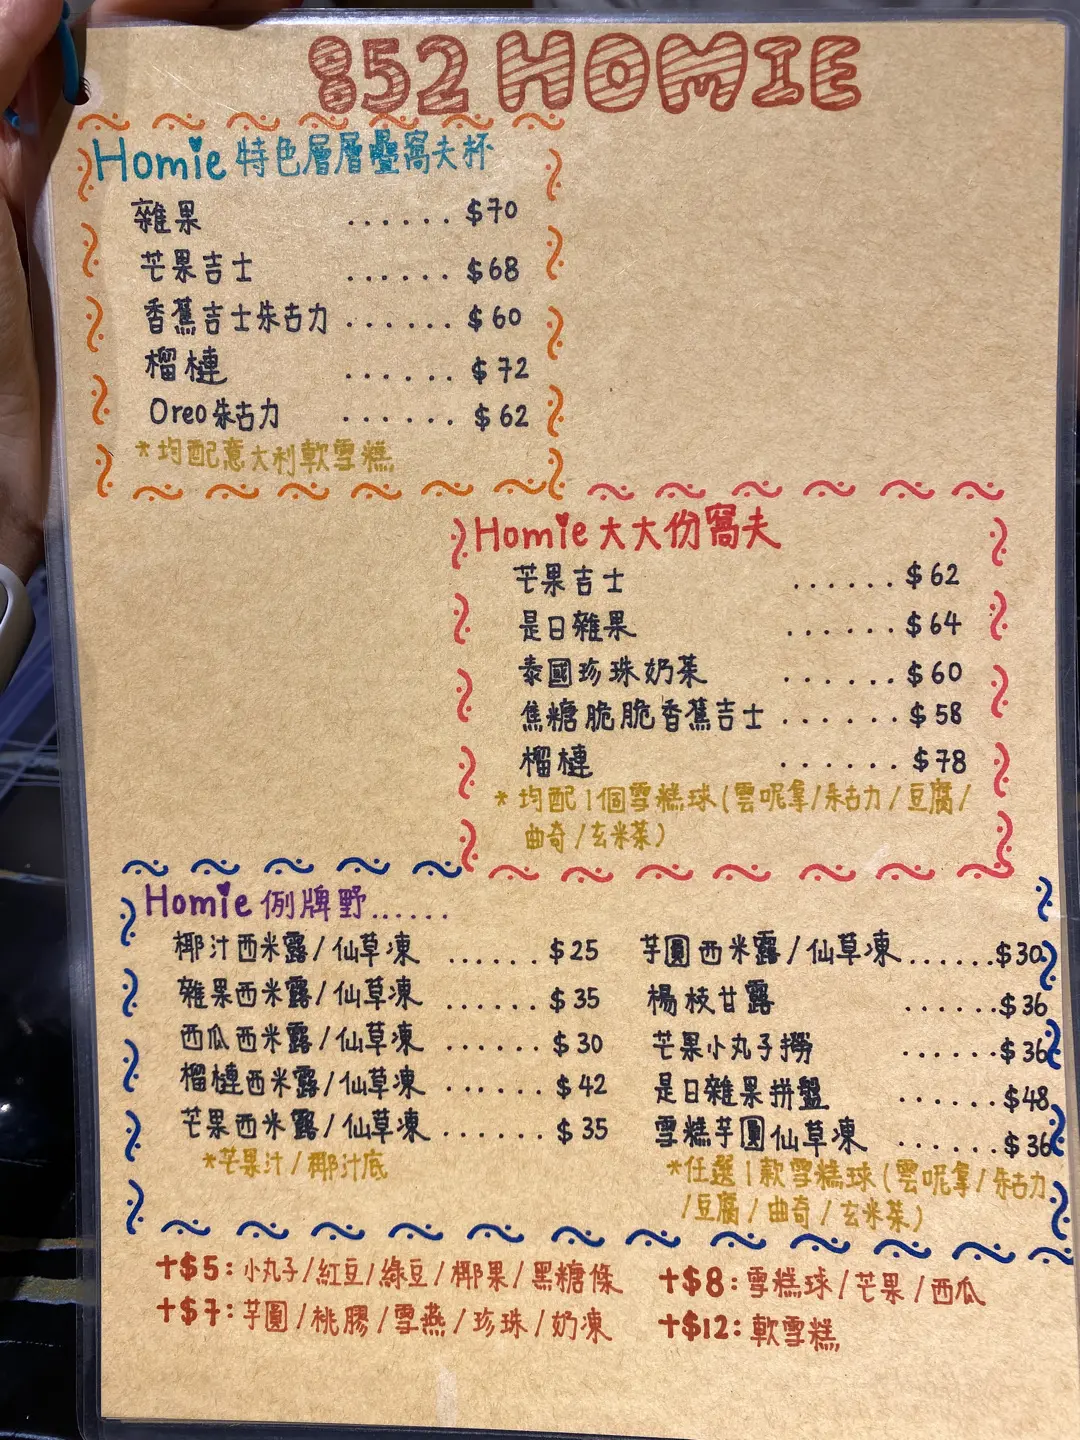 852 HOMIE
Homie 特色層層疊窩夫杯
雜果 ...... $70
芒果吉士 ...... $68
香蕉吉士朱古力 ...... $60
榴槤 ...... $72
Oreo朱古力 ...... $62
*均配意大利軟雪糕
Homie 大大份窩夫
芒果吉士 ...... $62
是日雜果 ...... $64
泰國珍珠奶茶 ...... $60
焦糖脆脆香蕉吉士 ...... $58
榴槤 ...... $78
* 均配1個雪糕球(雲呢拿/朱古力/豆腐/
曲奇/玄米茶)
Homie 例牌野......
椰汁西米露/仙草凍 ...... $25
雜果西米露/仙草凍 ...... $35
西瓜西米露/仙草凍 ...... $30
榴槤西米露/仙草凍 ...... $42
芒果西米露/仙草凍 ...... $35
*芒果汁/椰汁底
芋圓西米露/仙草凍 ...... $30
楊枝甘露 ...... $36
芒果小丸子撈 ...... $36
是日雜果拼盤 ...... $48
雪糕芋圓仙草凍 ...... $36
*任選1款雪糕球(雲呢拿/朱古力
/豆腐/曲奇/玄米茶)
+$5:小丸子/紅豆/綠豆/椰果/黑糖條
+$7:芋圓/桃膠/雪燕/珍珠/奶凍
+$8:雪糕球/芒果/西瓜
+$12:軟雪糕